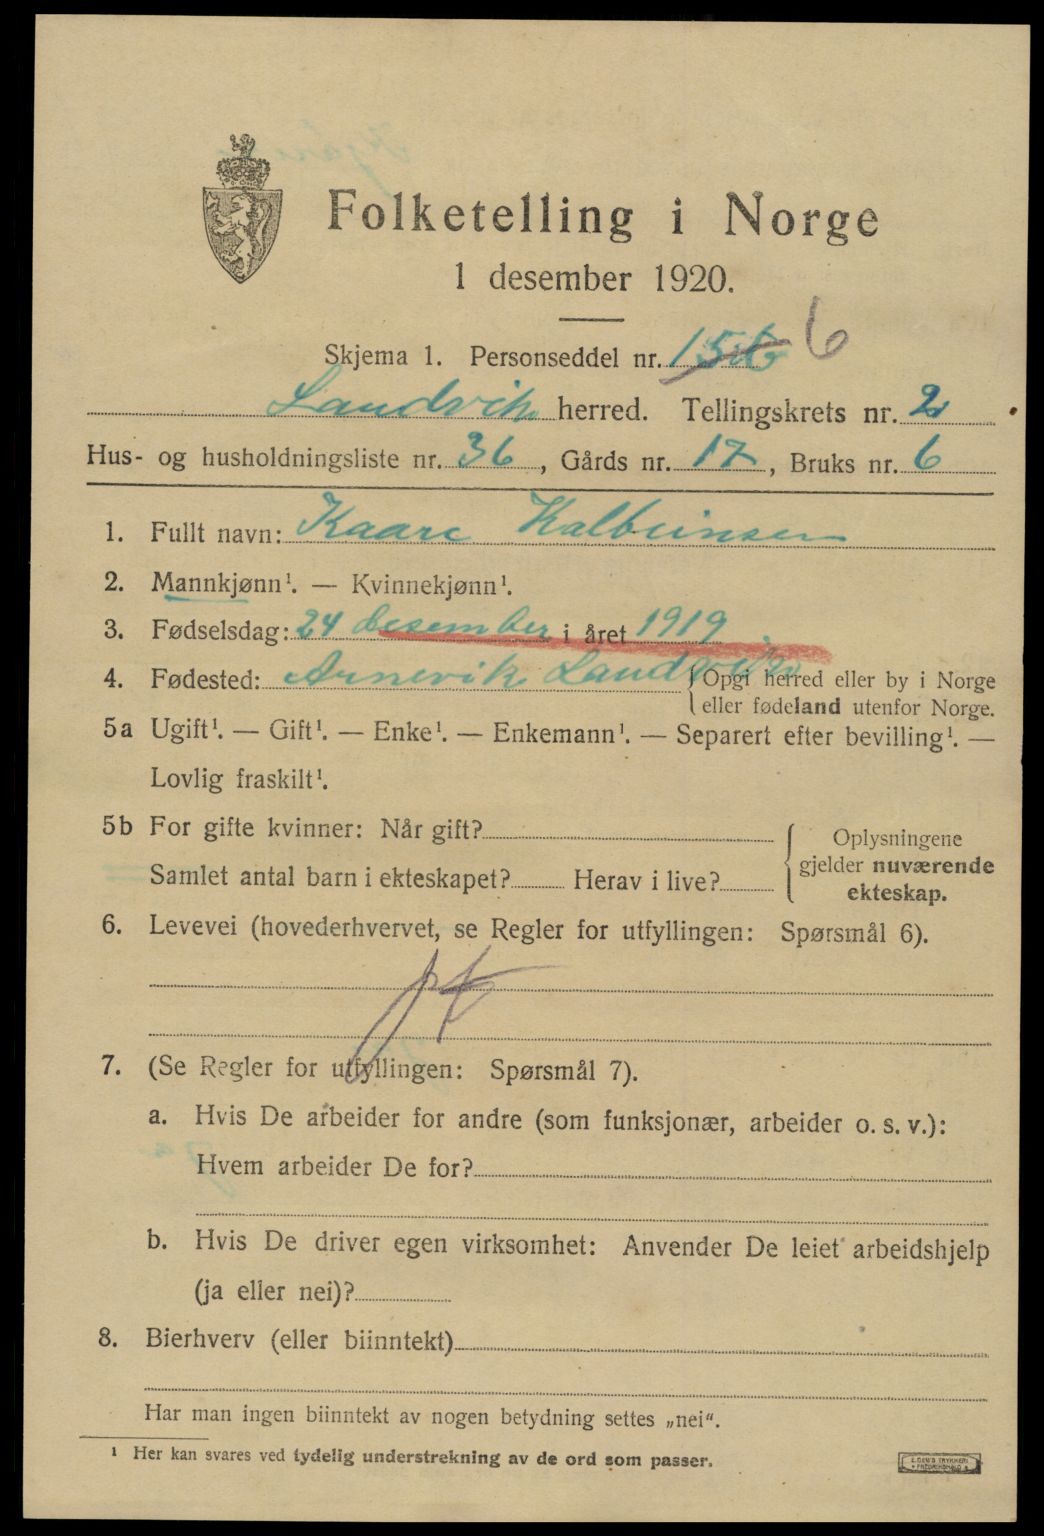 Folketelling i Norge
1 desember 1920.
Skjema 1. Personseddel nr. 6
Landvik herred. Tellingskrets nr. 2
Hus- og husholdningsliste nr. 36, Gårds nr. 17, Bruks nr. 6
1. Fullt navn: Kaare Kalbeinsen
2. Mannkjønn¹. — Kvinnekjønn¹.
3. Fødselsdag: 24 desember i året 1919
4. Fødested: Arnevik Landvik {Opgi herred eller by i Norge
eller fødeland utenfor Norge.
5a Ugift¹. — Gift¹. — Enke¹. — Enkemann¹. — Separert efter bevilling¹. —
Lovlig fraskilt¹.
5b For gifte kvinner: Når gift?
Samlet antal barn i ekteskapet? Herav i live?
Oplysningene
gjelder nuværende
ekteskap.
6. Levevei (hovederhvervet, se Regler for utfyllingen: Spørsmål 6).
7. (Se Regler for utfyllingen: Spørsmål 7).
a. Hvis De arbeider for andre (som funksjonær, arbeider o. s. v.):
Hvem arbeider De for?
b. Hvis De driver egen virksomhet: Anvender De leiet arbeidshjelp
(ja eller nei)?
8. Bierhverv (eller biinntekt)
Har man ingen biinntekt av nogen betydning settes „nei“.
¹ Her kan svares ved tydelig understrekning av de ord som passer.